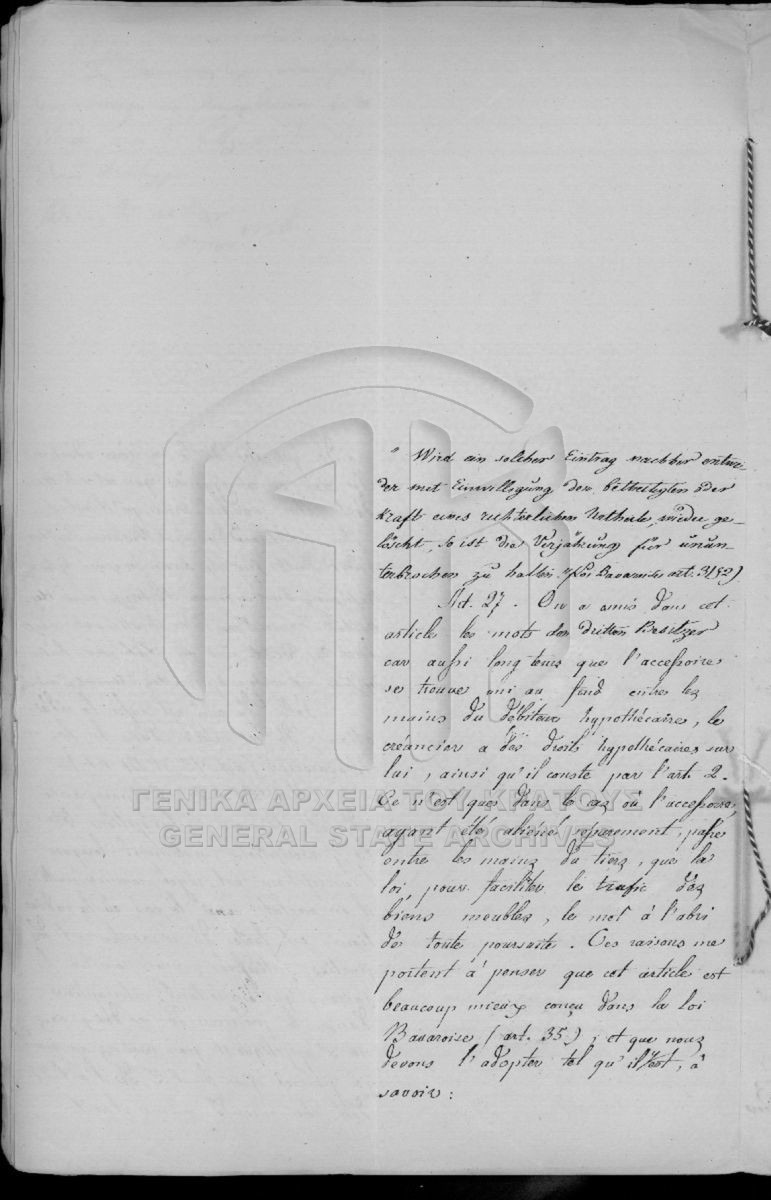 " Wird ein solcher Eintrag nachher entwe-
der mit Einwilligung der betheiligten oder
kraft eines richterlichen Urtheils wieder ge-
löscht, so ist die Verjährung für unun-
terbrochen zu halten. (Loi Bavaroise art. 31 § 2)
Art. 27. On a omis dans cet
article les mots den dritten Besitzer
car aussi long tems que l'accessoire
se trouve uni au fond entre les
mains du débiteur hypothécaire, le
créancier a des droits hypothécaires sur
lui, ainsi qu'il conste par l'art. 2.
Ce n'est que dans le cas où l'accessoire,
ayant été aliéné séparement, passe
entre les mains du tiers, que la
loi, pour faciliter le trafic des
biens meubles, le met à l'abri
de toute poursuite. Ces raisons me
portent à penser que cet article est
beaucoup mieux conçu dans la loi
Bavaroise (art. 35.) ; et que nous
devons l'adopter tel qu'il est, à
savoir :
ΓΕΝΙΚΑ ΑΡΧΕΙΑ ΤΟΥ ΚΡΑΤΟΥΣ
GENERAL STATE ARCHIVES